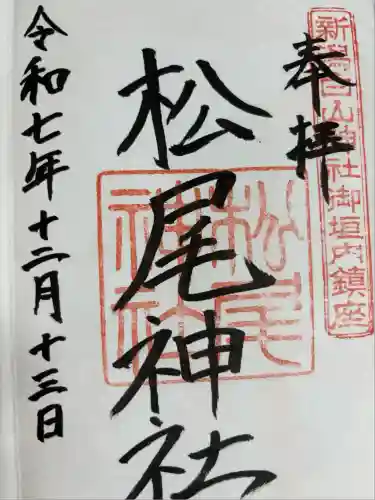 奉拝
新潟白山神社御垣内鎮座
松尾神社
松尾神社
令和七年十二月十三日